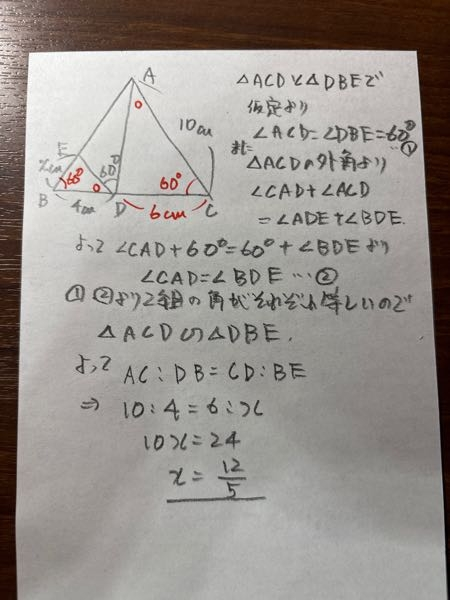 A
10cm
E
60°
xcm
60°
60°
B
4cm
D
6cm
C
△ACDと△DBEで
仮定より
∠ACD=∠DBE=60°…①
また
△ACDの外角より
∠CAD+∠ACD
=∠ADE+∠BDE.
よって∠CAD+60°=60°+∠BDEより
∠CAD=∠BDE…②
①②より2組の角がそれぞれ等しいので
△ACD∽△DBE.
よって AC:DB=CD:BE
⇒ 10:4=6:x
10x=24
x=12/5